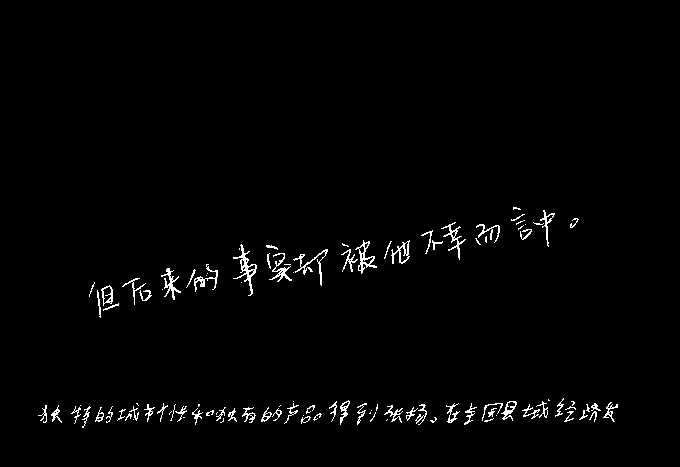 但后来的事实却被他不幸而言中。
独特的城市个性和独有的产品。得到张扬、在全国县域经济发